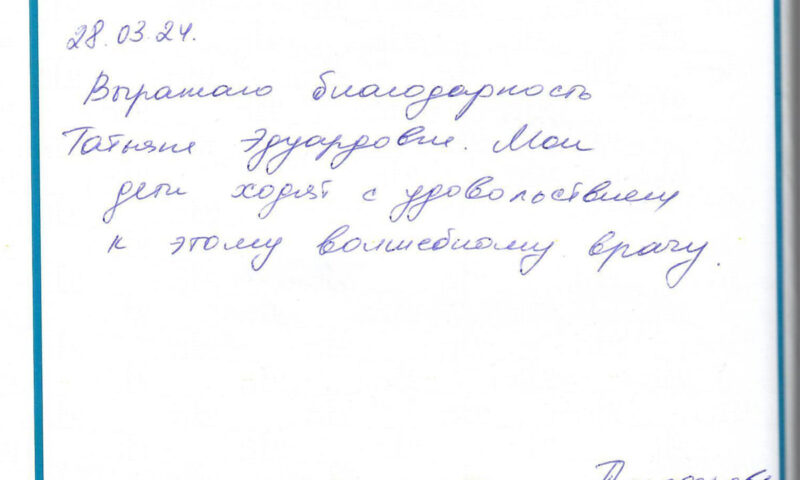 28.03.24.
Выражаю благодарность
Татьяне Эдуардовне. Мои
дети ходят с удовольствием
к этому волшебному врачу.